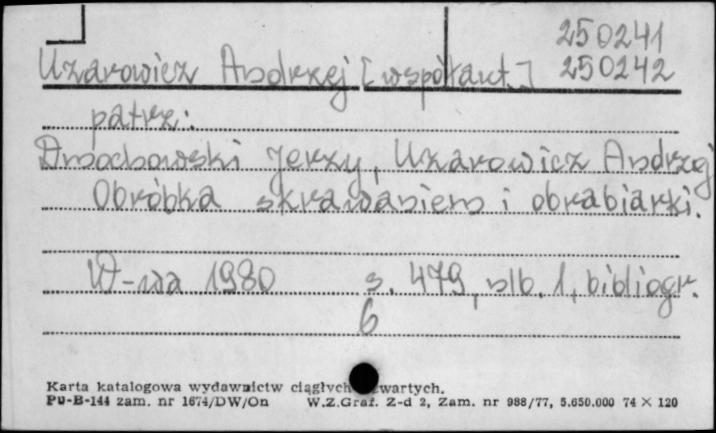 250241
Uzarowicz Andrzej [współaut.] 250242
patrz:
Dmochowski Jerzy, Uzarowicz Andrzej
Obróbka skrawaniem i obrabiarki.
W-wa 1980 s. 479, nlb. 1, bibliogr.
6
Karta katalogowa wydawnictw ciągłych zwartych.
Pu-B-144 zam. nr 1674/DW/On W.Z.Graf. Z-d 2, Zam. nr 988/77, 5.650.000 74 × 120